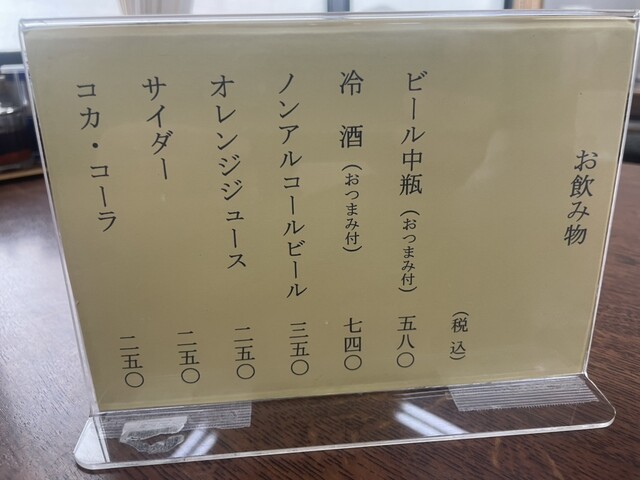 お飲み物
（税込）
ビール中瓶（おつまみ付）五八〇
冷酒（おつまみ付）七四〇
ノンアルコールビール三五〇
オレンジジュース二五〇
サイダー二五〇
コカ・コーラ二五〇